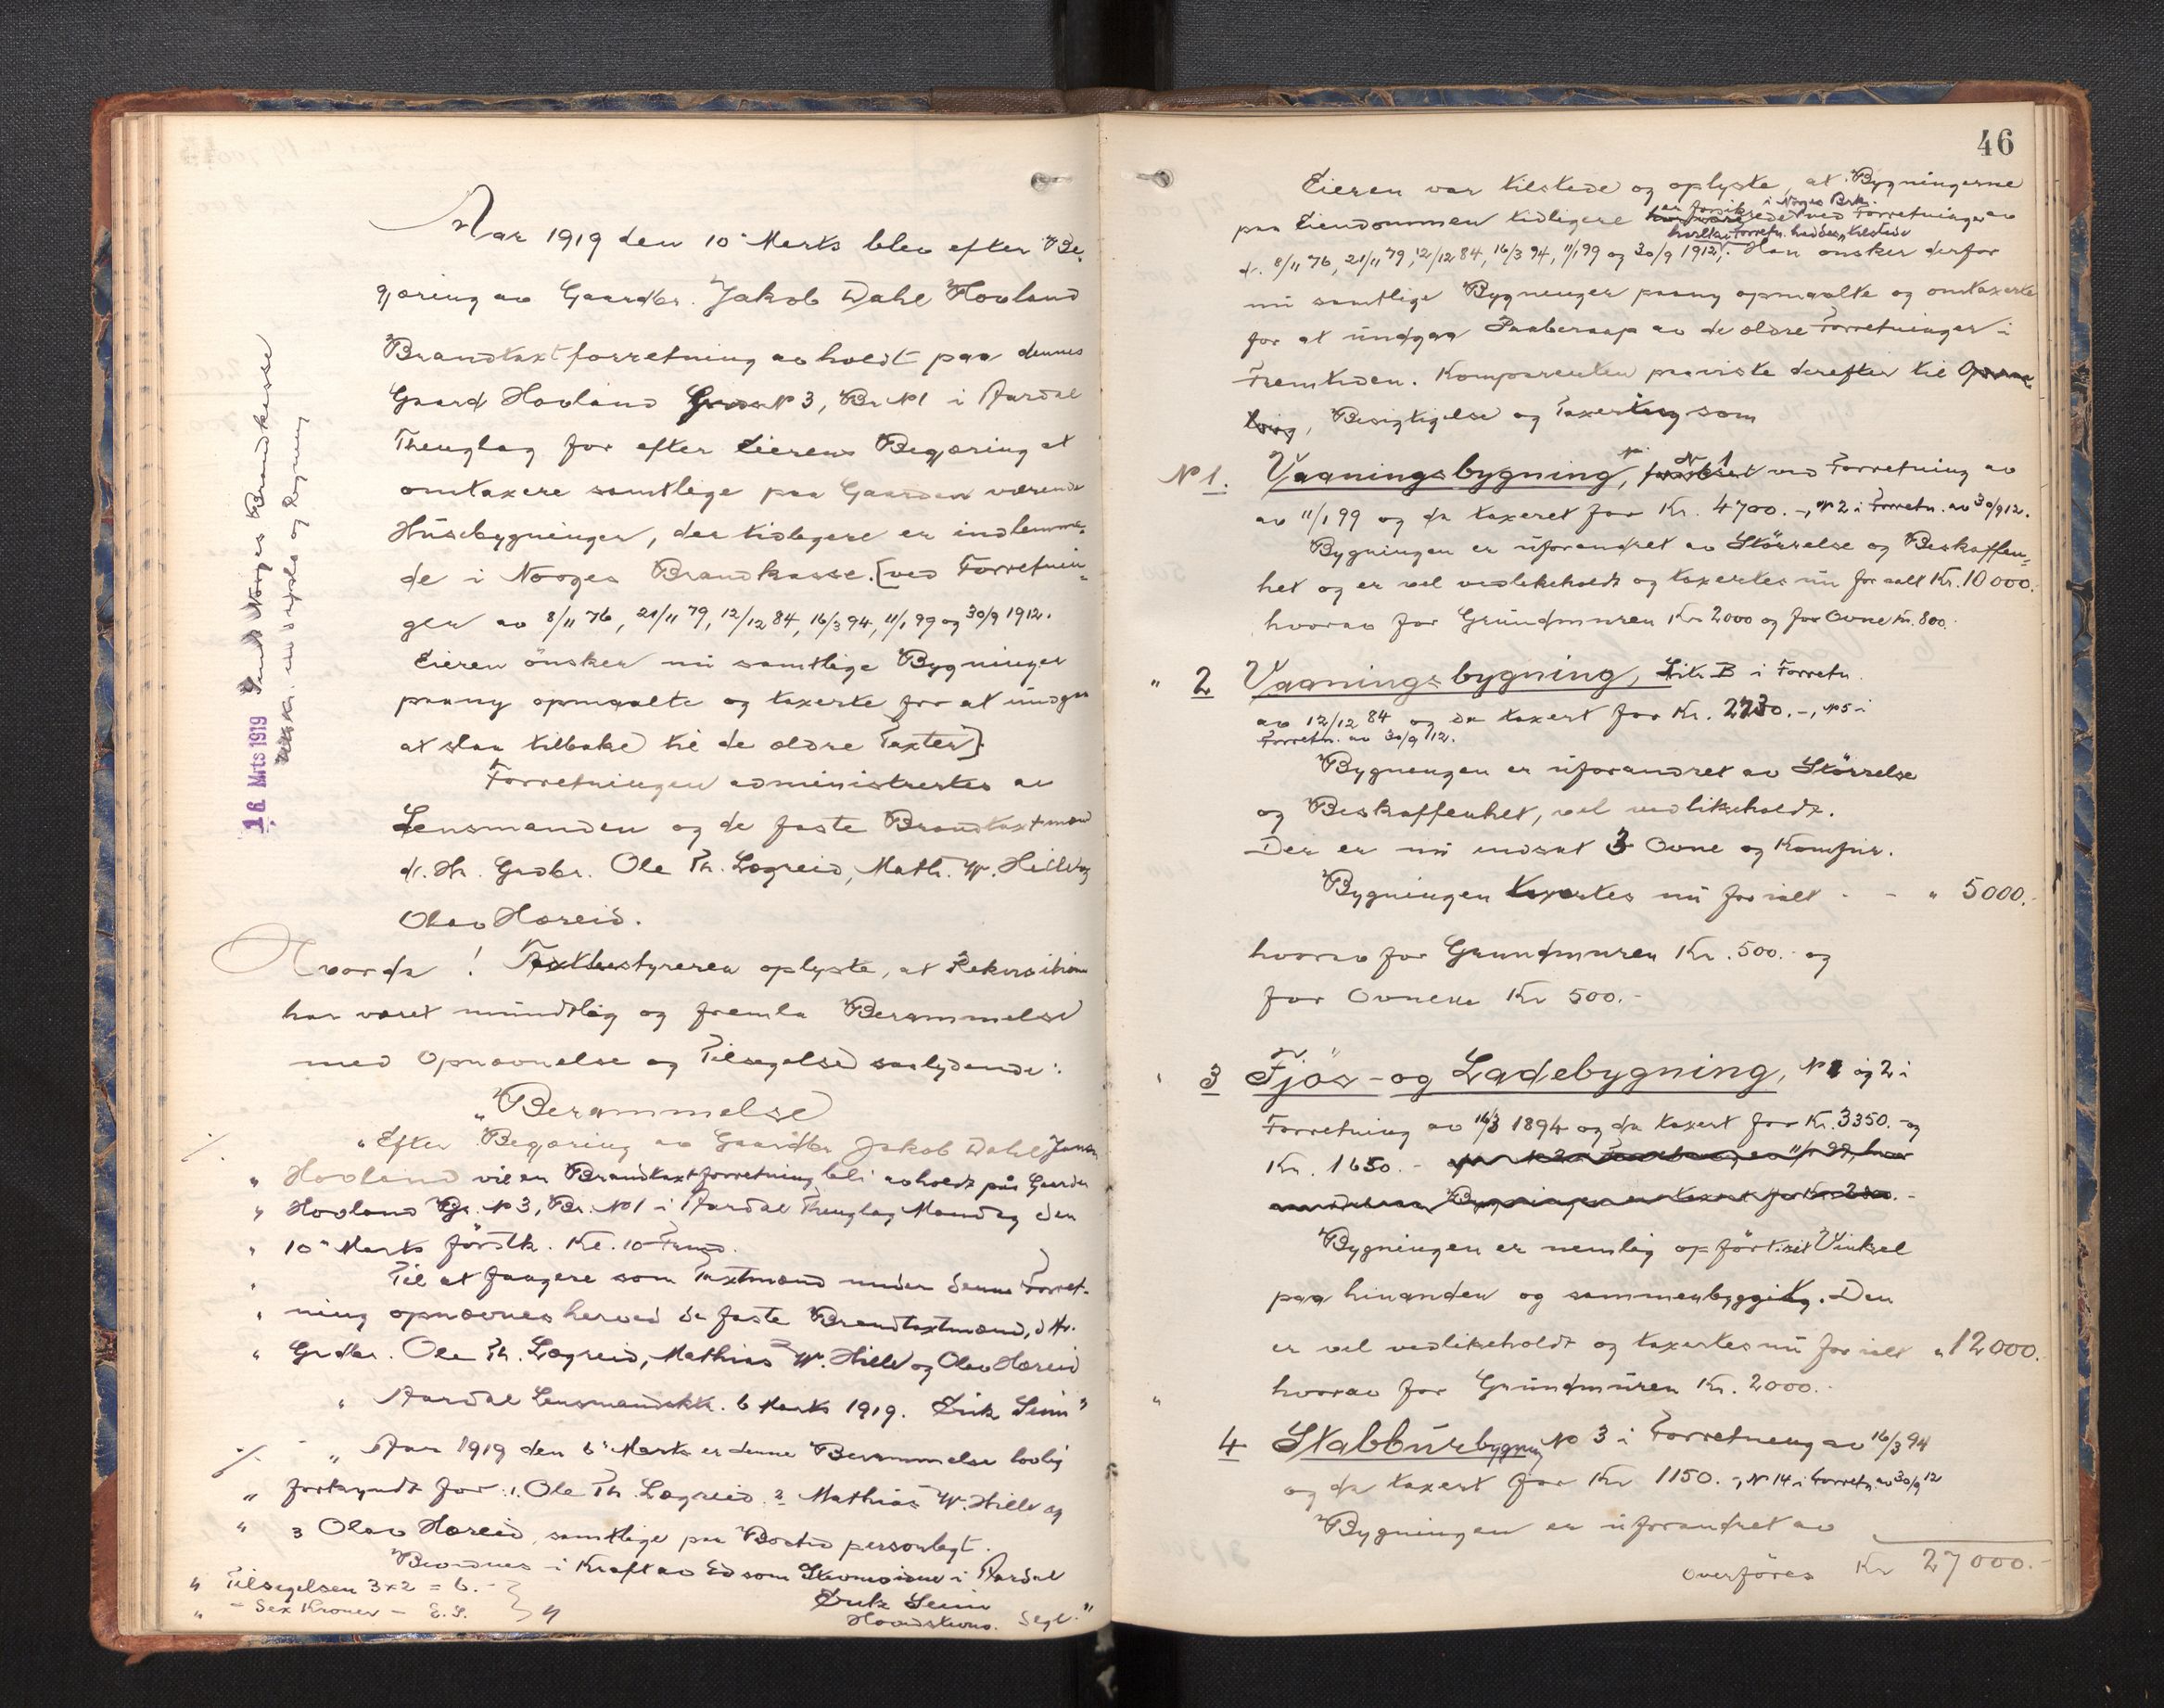 Aar 1919 den 10 Marts blev efter Be-
gjæring av Gaardbr. Jakob Dahl Hovland
Brandtaxtforretning avholdt paa dennes
Gaard Hovland Grds No 3, Br No 1 i Aardal
Thinglag for efter Eierens Begjæring at
omtaxere samtlige paa Gaarden værende
Husebygninger, der tidligere er indlemme-
de i Norges Brandkasse. [ved Forretnin-
ger av 8/11 76, 21/11 79, 12/12 84, 16/3 94, 11/1 99 og 30/9 1912.
Eieren ønsker nu samtlige Bygninger
paany opmaalte og taxerte for at undgaa
at slaa tilbake til de ældre Taxter].
Forretningen administrertes av
Lensmanden og de faste Brandtaxtmænd
d. Hr. Grdbr. Ole Th. Lægreid, Math. W. Hille og
Olav Hæreid.
Hvorda! Taxtbestyreren oplyste, at Rekvisitionen
har været mundtlig og fremla Berammelse
med Opnævnelse og Tilsigelse saalydende:
"Berammelse
"Efter Begjæring av Gaardbr Jakob Dahl Jansen
" Hovland vil en Brandtaxtforretning bli avholdt paa Gaarden
" Hovland Gr. No 3, Br. No 1 i Aardal Thinglag Mandag den
" 10 Marts førstk. Kl. 10 Form.
" Til at fungere som Taxtmænd under denne Forret-
" ning opnævnes herved de faste Brandtaxtmænd, d Hr.
" Grdbr. Ole Th. Lægreid, Mathias W. Hille og Olav Hæreid
" Aardal Lensmandsktr. 6 Marts 1919. Erik Seim"
" Aar 1919 den 6 Marts er denne Berammelse lovlig
" forkyndt for: 1. Ole Th. Lægreid. 2 Mathias W. Hille og
" 3 Olav Hæreid, samtlige paa Bosted personlegt.
Bevidnes i Kraft av Ed som Stevnevidne i Aardal
" Tilsigelsen 3x2 = 6.-
Erik Seim
" - Sex Kroner - E.S.
Hovedstevnv. Segl."
16 Mrts 1919 Sendt Norges Brandkasse
Utskr. med og Regning
46
Eieren var tilstede og oplyste, at Bygningerne
er forsikrede i Norges Brk.
paa Eiendommen tidligere ved Forretninger av
hvilke Forretn. haddes tilstede
d. 8/11 76, 21/11 79, 12/12 84, 16/3 94, 11/1 99 og 30/9 1912. Han ønsker derfor
nu samtlige Bygninger paany opmaalte og omtaxerte
for at undgaa Paaberaap av de ældre Forretninger i
Fremtiden. Komparenten paaviste derefter til
, Besigtigelse og Taxering som
No 1. Vaaningsbygning, No 1 ved Forretning av
av 11/1 99 og da taxeret for Kr. 4700.-, No 2 i Forretn. av 30/9 12.
Bygningen er uforandret av Størrelse og Beskaffen-
het og er vel vedlikeholdt og taxertes nu for ialt Kr. 10000.-
hvorav for Grundmuren Kr 2000 og for Ovne Kr. 800.-
" 2 Vaaningsbygning, Litr. B i Forretn.
av 12/12 84 og da taxert for Kr. 2730.-, No 5 i
Forretn. av 30/9 12.
Bygningen er uforandret av Størrelse
og Beskaffenhet, vel vedlikeholdt.
Der er nu indsat 3 Ovne og Komfur.
Bygningen taxertes nu for ialt - - " 5000.-
hvorav for Grundmuren Kr. 500.- og
for Ovnene Kr 500.-
" 3 Fjøs- og Ladebygning, No 1 og 2 i
Forretning av 16/3 1894 og da taxert for Kr. 3350.- og
Kr. 1650.-
Bygningen er nemlig opført i Vinkel
paa hinanden og sammenbygget. Den
er vel vedlikeholdt og taxertes nu for ialt " 12000.
hvorav for Grundmuren Kr. 2000.-
" 4 Stabburbygning No 3 i Forretning av 16/3 94
og da taxert for Kr 1150.-, No 14 i Forretn. av 30/9 12
Bygningen er uforandret av
Overføres Kr 27000.-